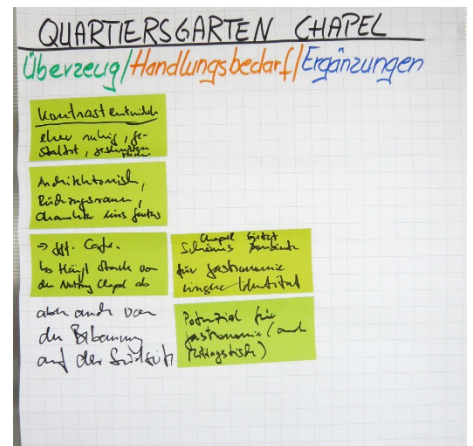 QUARTIERSGARTEN CHAPEL
Überzeug/Handlungsbedarf/Ergänzungen
Kontrast
eher ruhig, ge-
staltet,
Architektonisch,
Rückzugsraum,
Charakter eines Gartens
→ öff. Café.
↳ Hängt stark von
der Nutzung Chapel ab
aber auch von
der Bebauung
auf der Südseite
Chapel bietet
schönes Ambiente
für Gastronomie
Identität
Potenzial für
Gastronomie (auch
Mittagstisch)